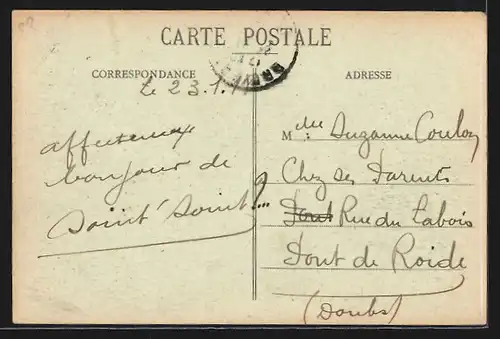 CARTE POSTALE
CORRESPONDANCE
ADRESSE
Le 23.1.
affectueux
bonjour de
Saint' Saint!...
Mdlle Suzanne Coulon
Chez ses Parents
Pont Rue du Labois
Pont de Roide
(Doubs)